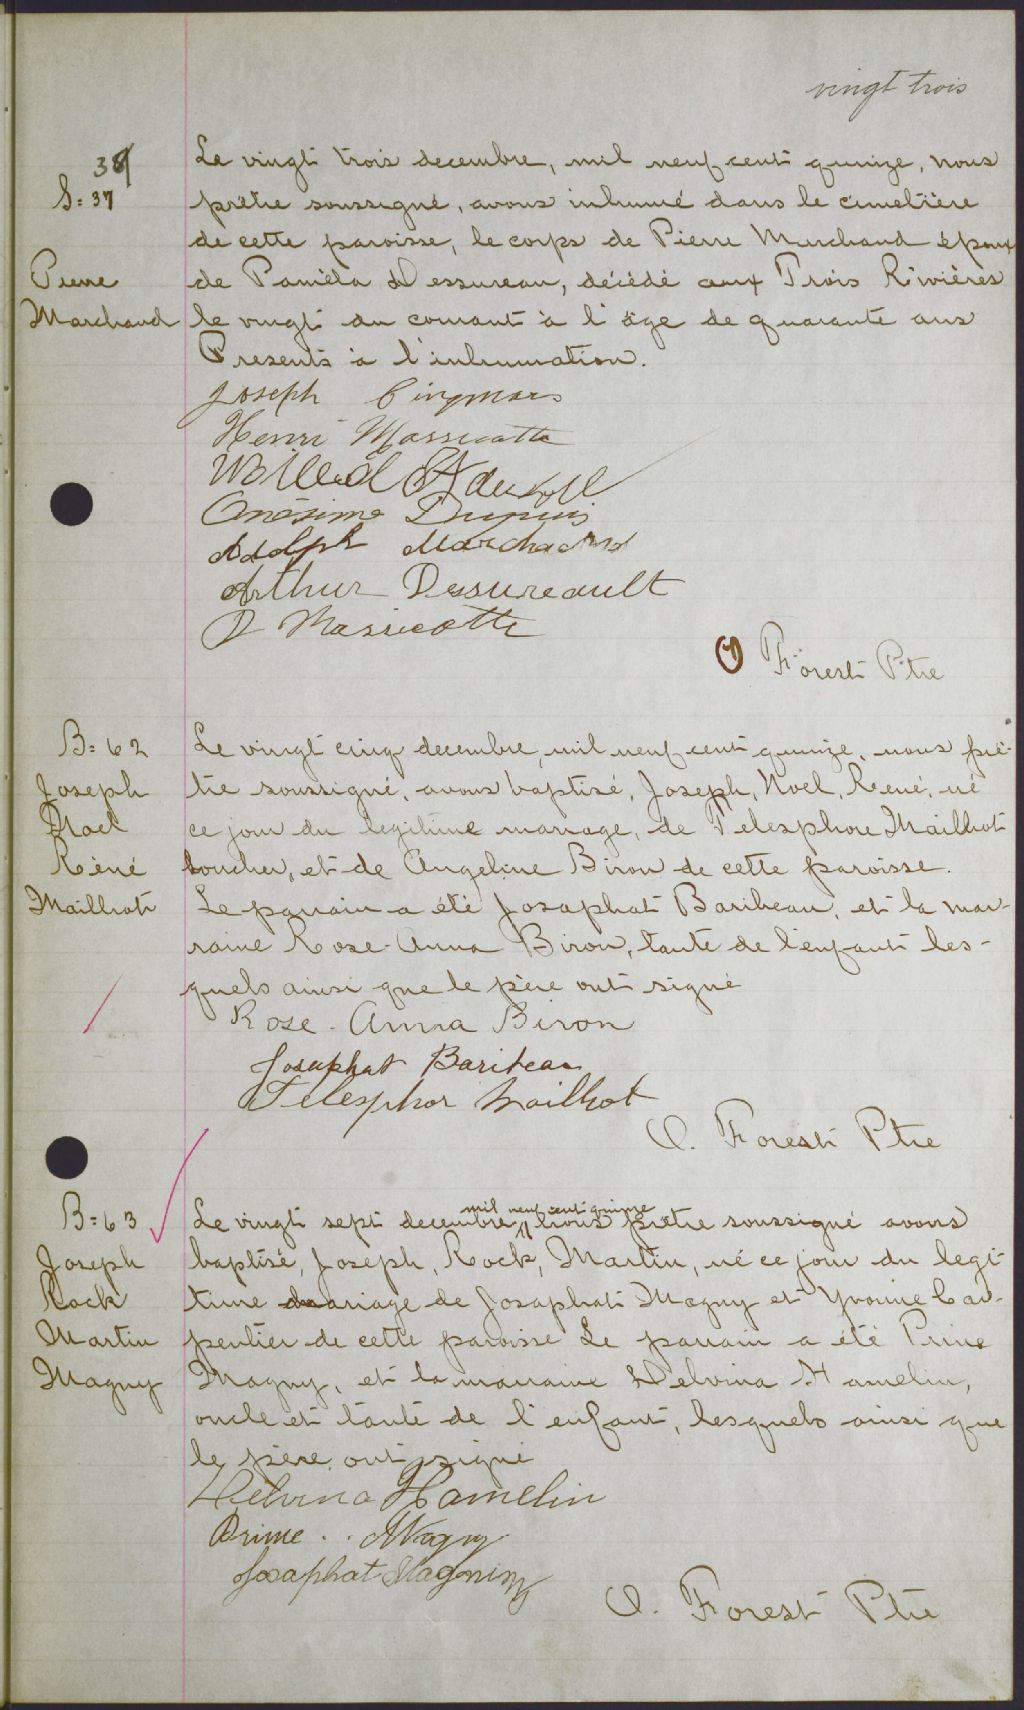 vingt trois
38
S: 37
Pierre
Marchand
Le vingt trois decembre, mil neuf cent quinze, nous
prêtre soussigné, avons inhumé dans le cimetière
de cette paroisse, le corps de Pierre Marchand époux
de Paméla Dessureau, décédé aux Trois Rivières
le vingt du courant à l'âge de quarante ans
Presents à l'inhumation.
Joseph Cinqmars
Henri Massicotte
Onésime Dupuis
Adolph Marchand
Arthur Dessureault
D Massicotte
O Forest Ptre
B: 62
Joseph
Noel
Réné
Mailhot
Le vingt cinq decembre, mil neuf cent quinze, nous prê-
tre soussigné, avons baptisé, Joseph, Noel, René, né
ce jour du legitime mariage, de Telesphore Mailhot
boucher, et de Angeline Biron de cette paroisse.
Le parrain a été Josaphat Baribeau, et la mar-
raine Rose-Anna Biron, tante de l'enfant les-
quels ainsi que le père ont signé
Rose-Anna Biron
Josaphat Baribeau
Telesphor Mailhot
O. Forest Ptre
B: 63
Joseph
Rock
Martin
Magny
Le vingt sept decembre mil neuf cent quinze nous prêtre soussigné avons
baptisé, Joseph, Rock, Martin, né ce jour du legi-
time mariage de Josaphat Magny et Yvonne Car-
pentier de cette paroisse Le parrain a été Prime
Magny, et la marraine Delvina Hamelin,
oncle et tante de l'enfant, lesquels ainsi que
le père ont signé
Delvina Hamelin
Prime Magny
Josaphat Magny
O. Forest Ptre